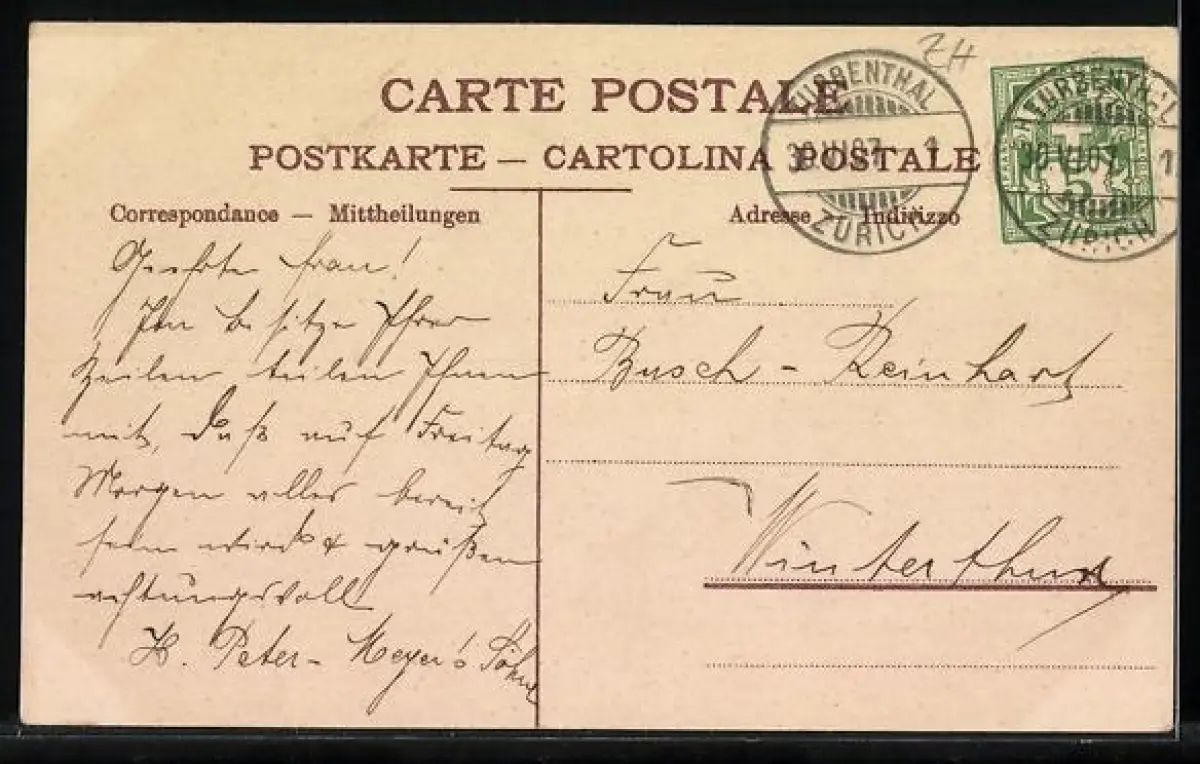 ZH
CARTE POSTALE
POSTKARTE — CARTOLINA POSTALE
Correspondance — Mittheilungen
Adresse — Indirizzo
TURBENTHAL
30.VI.07 - 1
ZÜRICH
TURBENTHAL
30.VI.07 - 1
ZÜRICH
5
Geehrte Frau!
Im Besitze Ihrer
Zeilen teilen Ihnen
mit, daß auf Freitag
Morgen alles bereit
sein wird & grüßen
achtungsvoll
H. Peter-Meyer's Söhne
Frau
Busch-Reinhart
Winterthur